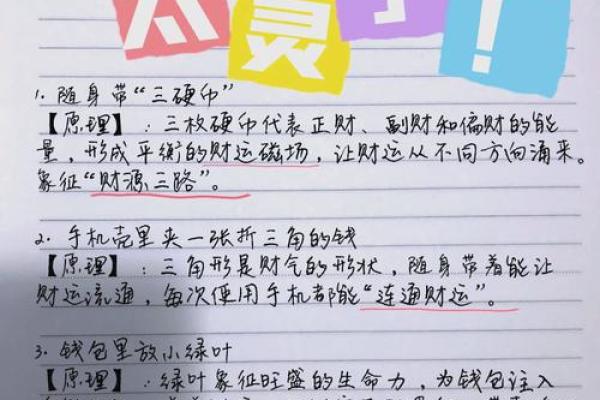 太灵了!
1. 随身带“三硬币”
【原理】:三枚硬币代表正财、副财和偏财的能
量,形成平衡的财运磁场,让财运从不同方向涌来。
象征“财源三路”。
2. 手机壳里夹一张折三角的钱
【原理】:三角形是财气的形状,随身带着能让
财运流通,每次使用手机都能“连通财运”。
3. 钱包里放小绿叶
【原理】:绿叶象征旺盛的生命力,为钱包注入